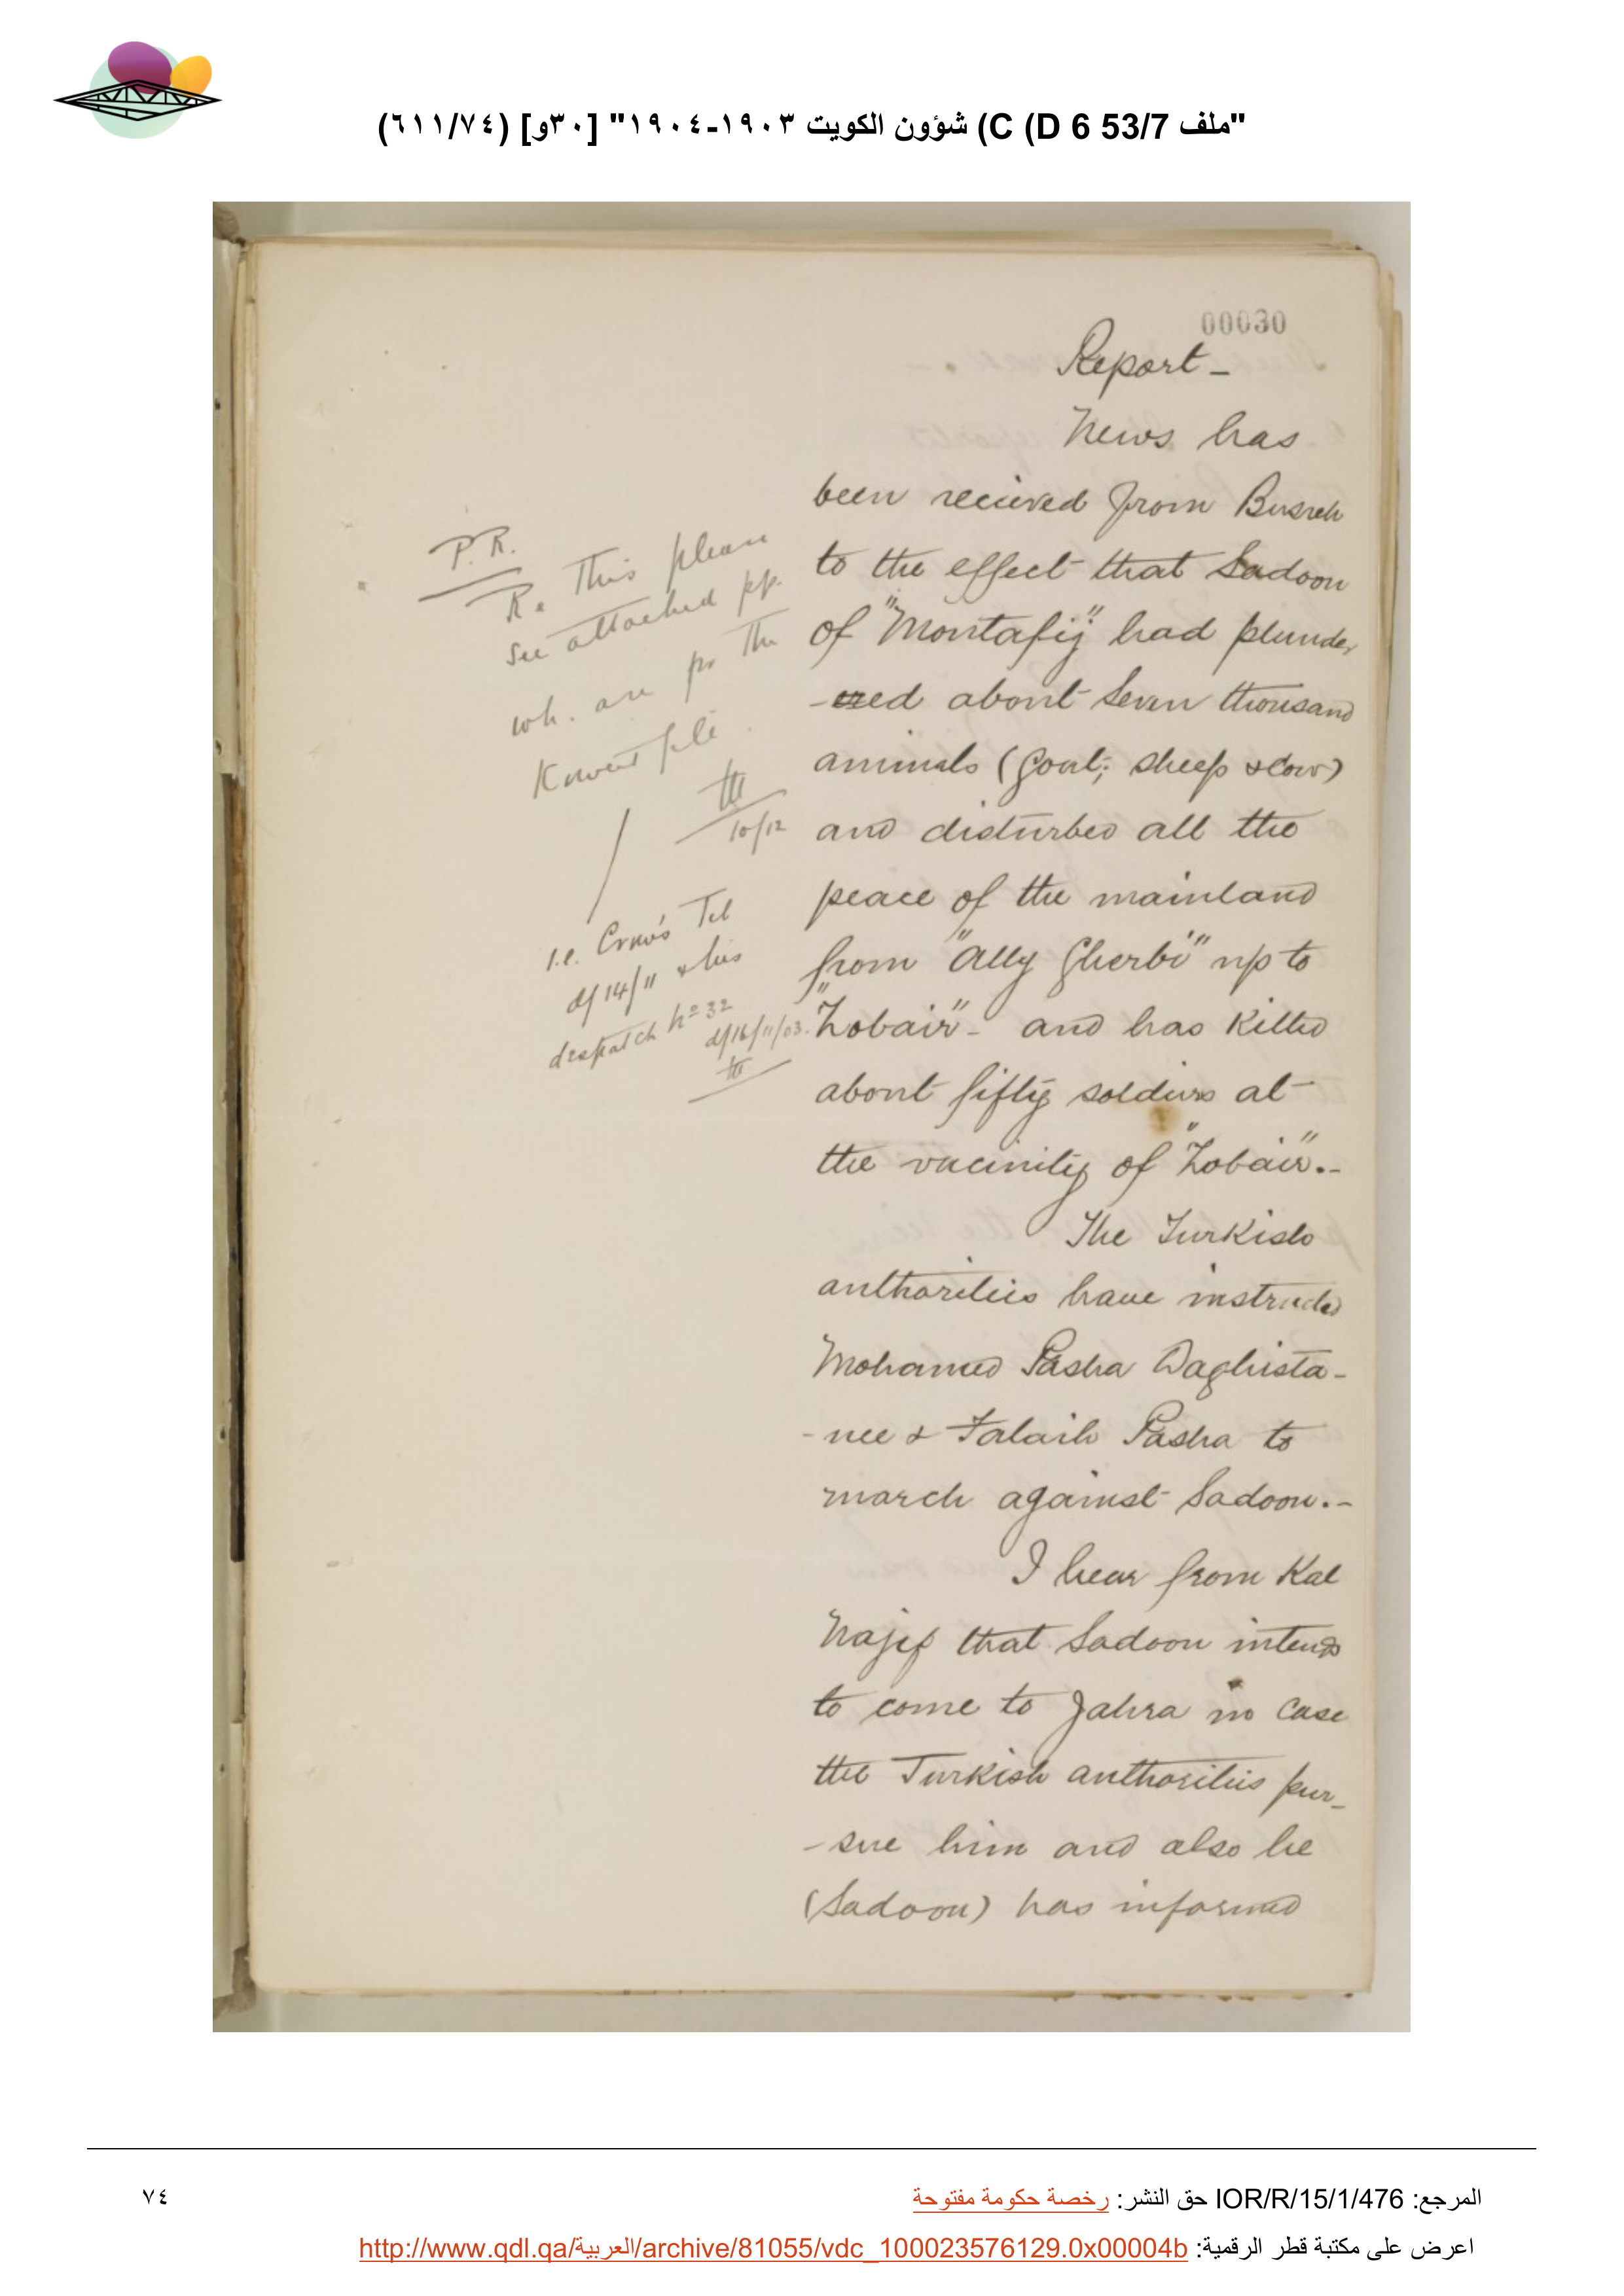 "ملف 53/7 C (D 6) شؤون الكويت ١٩٠٣-١٩٠٤" [٣٠و] (٦١١/٧٤)
00030
Report -
News has
been recieved from Busreh
to the effect that Sadoon
of "Montafij" had plunder
-ed about seven thousand
animals (goat, sheep & cow)
and disturbed all the
peace of the mainland
from "Ally Gherbi" up to
"Zobair" - and has killed
about fifty soldiers at
the vacinity of "Zobair".-
The Turkish
authorities have instructed
Mohamed Pasha Daghista-
-nee & Falaih Pasha to
march against Sadoon.-
I hear from Kal
Najef that Sadoon intends
to come to Jahra in case
the Turkish authorities pur-
-sue him and also he
(Sadoon) has informed
P.R.
Re This please
see attached pp.
wh. are fr the
Koweit file.
10/12
i.e. Crow's Tel
d/14/11 & his
despatch No 32
d/16/11/03.
المرجع: IOR/R/15/1/476 حق النشر: رخصة حكومة مفتوحة
اعرض على مكتبة قطر الرقمية: http://www.qdl.qa/العربية/archive/81055/vdc_100023576129.0x00004b
٧٤